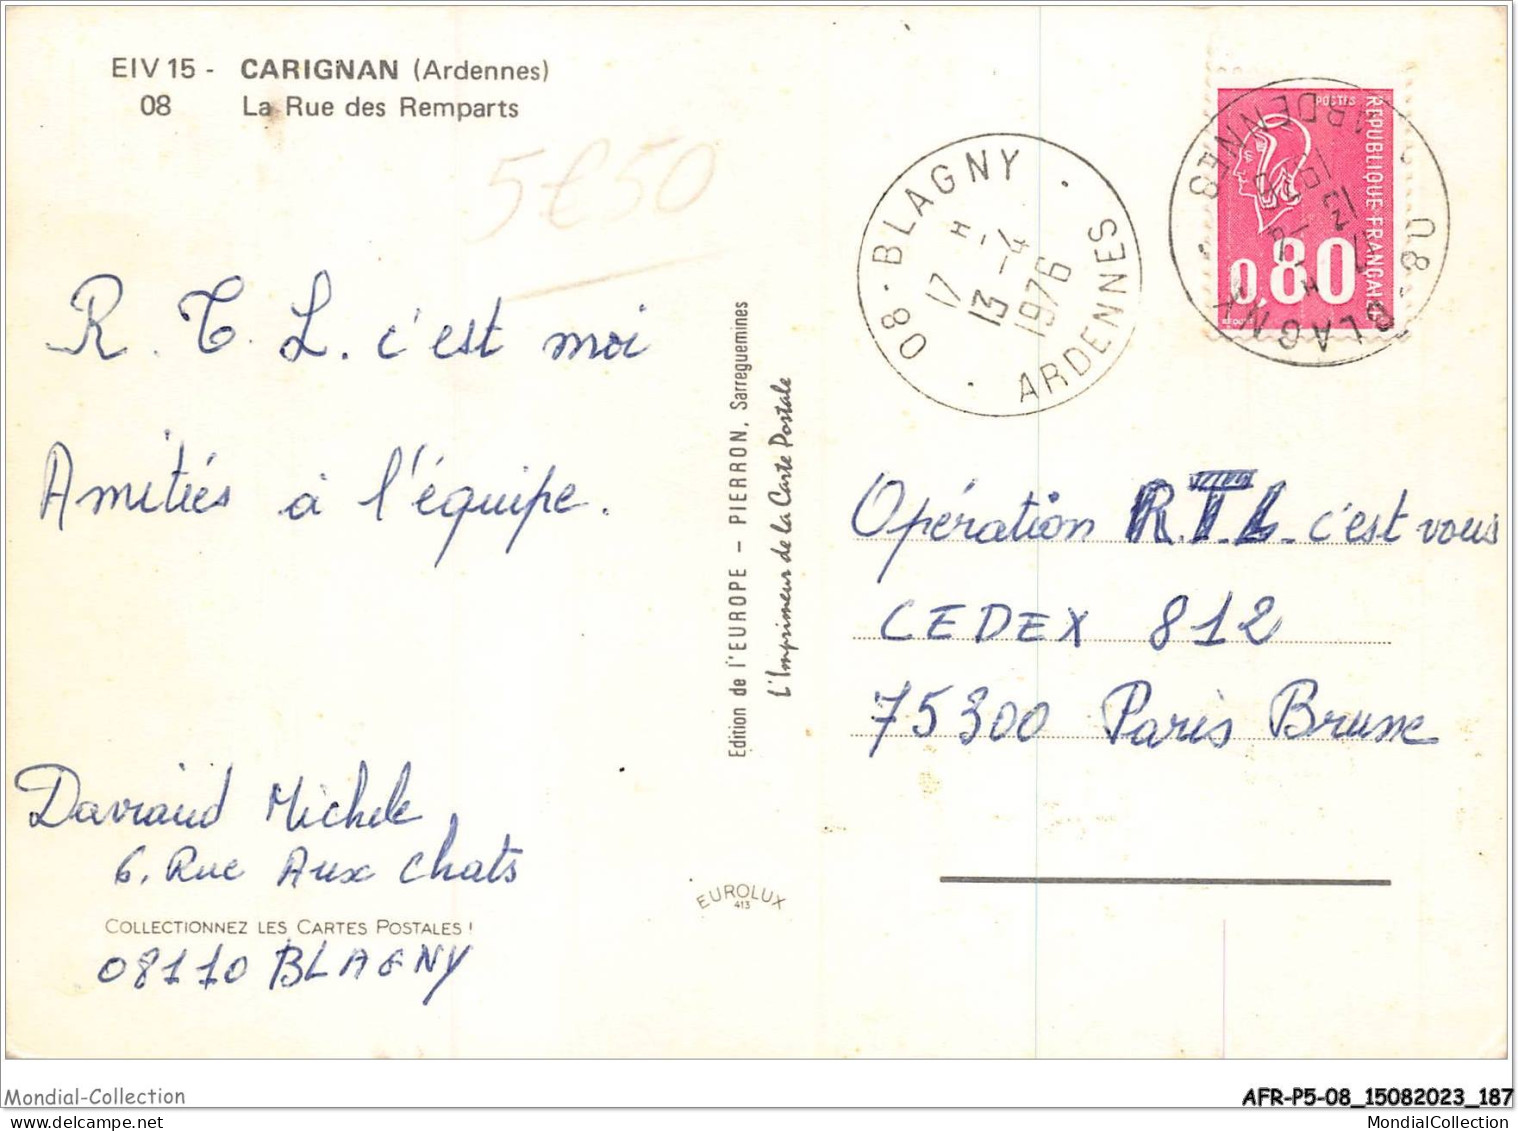 EIV 15 - CARIGNAN (Ardennes)
08 La Rue des Remparts
5€50
R.T.L. c'est moi
Amitiés à l'équipe.
Michele
6. Rue Aux Chats
COLLECTIONNEZ LES CARTES POSTALES !
08110 BLAGNY
Edition de l'EUROPE - PIERRON, Sarreguemines
L'Imprimeur de la Carte Postale
EUROLUX
413
08 - BLAGNY
17 H
13 - 4
1976
ARDENNES
POSTES
REPUBLIQUE FRANÇAISE
0,80
08 - BLAGNY
ARDENNES
Opération R.T.L. c'est vous
CEDEX 812
75300 Paris Brune
Mondial-Collection
mondialcollection.com
AFR-P5-08_15082023_187
MondialCollection.com